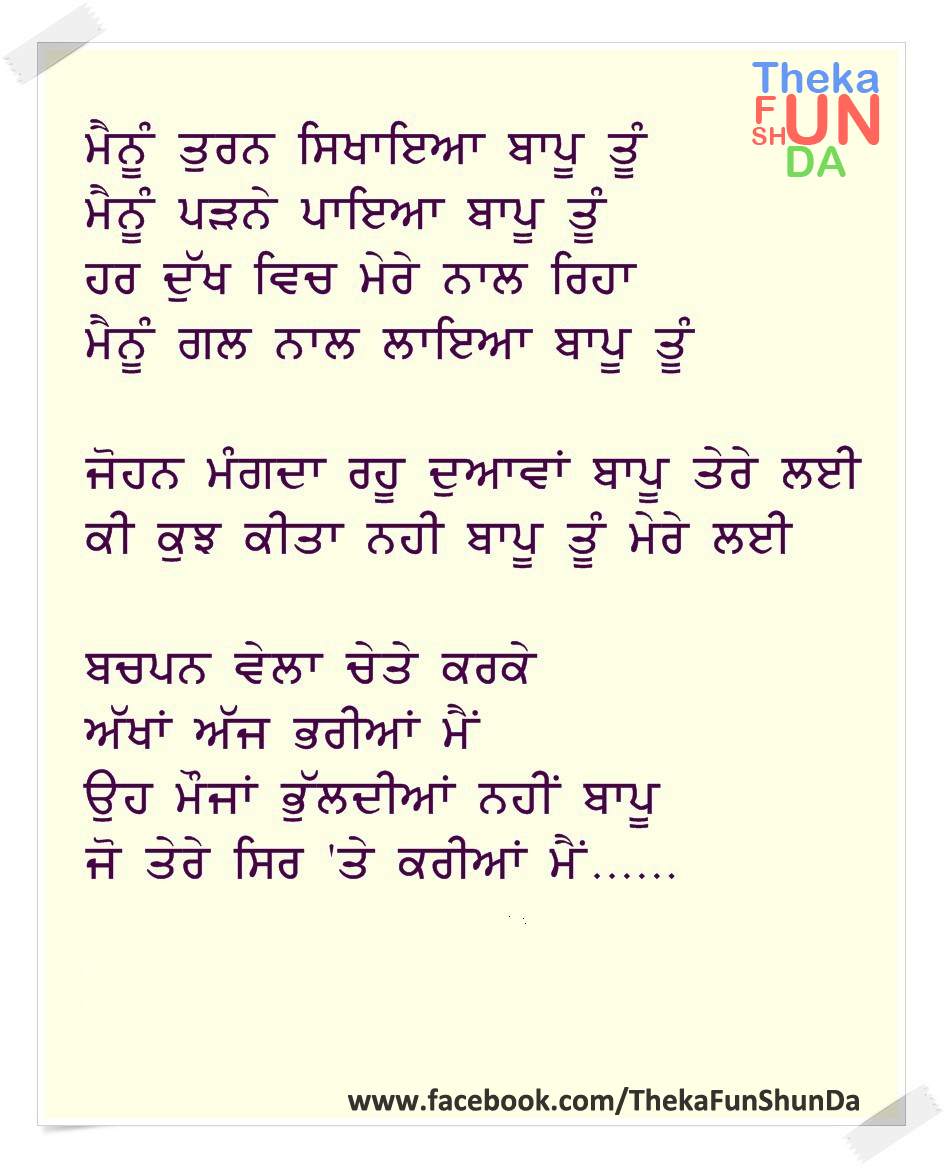 Theka
FUN
SHUNDA
ਮੈਨੂੰ ਤੁਰਨ ਸਿਖਾਇਆ ਬਾਪੂ ਤੂੰ
ਮੈਨੂੰ ਪੜਨੇ ਪਾਇਆ ਬਾਪੂ ਤੂੰ
ਹਰ ਦੁੱਖ ਵਿਚ ਮੇਰੇ ਨਾਲ ਰਿਹਾ
ਮੈਨੂੰ ਗਲ ਨਾਲ ਲਾਇਆ ਬਾਪੂ ਤੂੰ
ਜੋਹਨ ਮੰਗਦਾ ਰਹੂ ਦੁਆਵਾਂ ਬਾਪੂ ਤੇਰੇ ਲਈ
ਕੀ ਕੁਝ ਕੀਤਾ ਨਹੀ ਬਾਪੂ ਤੂੰ ਮੇਰੇ ਲਈ
ਬਚਪਨ ਵੇਲਾ ਚੇਤੇ ਕਰਕੇ
ਅੱਖਾਂ ਅੱਜ ਭਰੀਆਂ ਮੈਂ
ਉਹ ਮੌਜਾਂ ਭੁੱਲਦੀਆਂ ਨਹੀਂ ਬਾਪੂ
ਜੋ ਤੇਰੇ ਸਿਰ 'ਤੇ ਕਰੀਆਂ ਮੈਂ......
www.facebook.com/ThekaFunShunDa